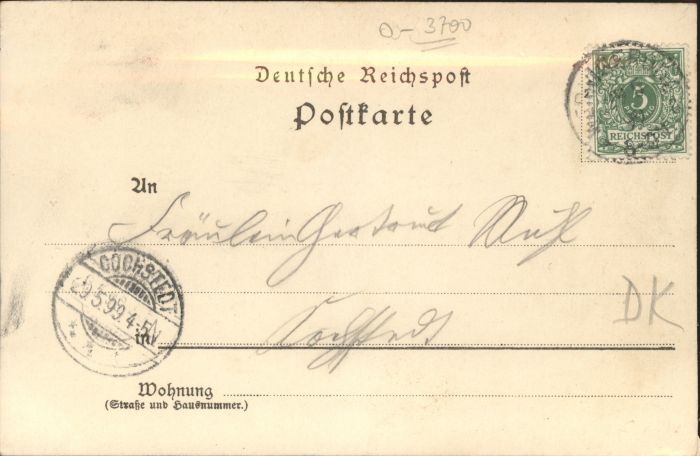 D- 3700
Deutsche Reichspost
Postkarte
5
REICHSPOST
An
Fräulein Gertrud
COCHSTEDT
29.5.99.4-5N
Cochstedt
in
DK
Wohnung
(Straße und Hausnummer.)